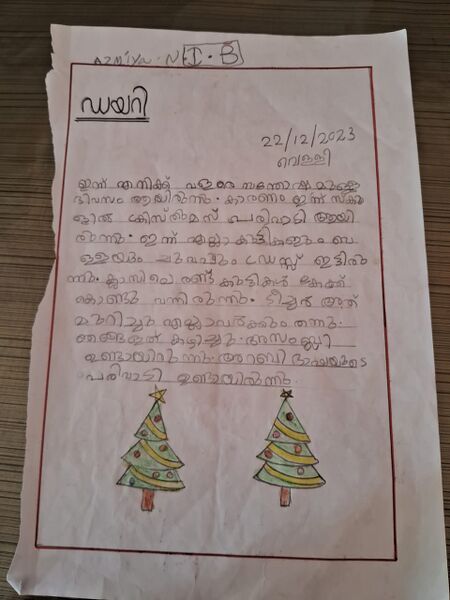 Azmiya . N I - B
ഡയറി
22/12/2023
വെള്ളി
ഇന്ന് എനിക്ക് വളരെ സന്തോഷമുള്ള
ദിവസം ആയിരുന്നു. കാരണം ഇന്ന് സ്കൂ
ളിൽ ക്രിസ്തമസ് പരിപാടി ആയി
രുന്നു. ഇന്ന് എല്ലാ കുട്ടികളും വെ
ള്ളയും ചുവപ്പും ഡ്രസ്സ് ഇട്ടിരു
ന്നു. ക്ലാസിലെ രണ്ട് കുട്ടികൾ കേക്ക്
കൊണ്ടു വന്നിരുന്നു. ടീച്ചർ അത്
മുറിച്ചു എല്ലാവർക്കും തന്നു.
ഞങ്ങളത് കഴിച്ചു. അസംബ്ലി
ഉണ്ടായിരുന്നു. അറബി ഭാഷയുടെ
പരിപാടി ഉണ്ടായിരുന്നു.